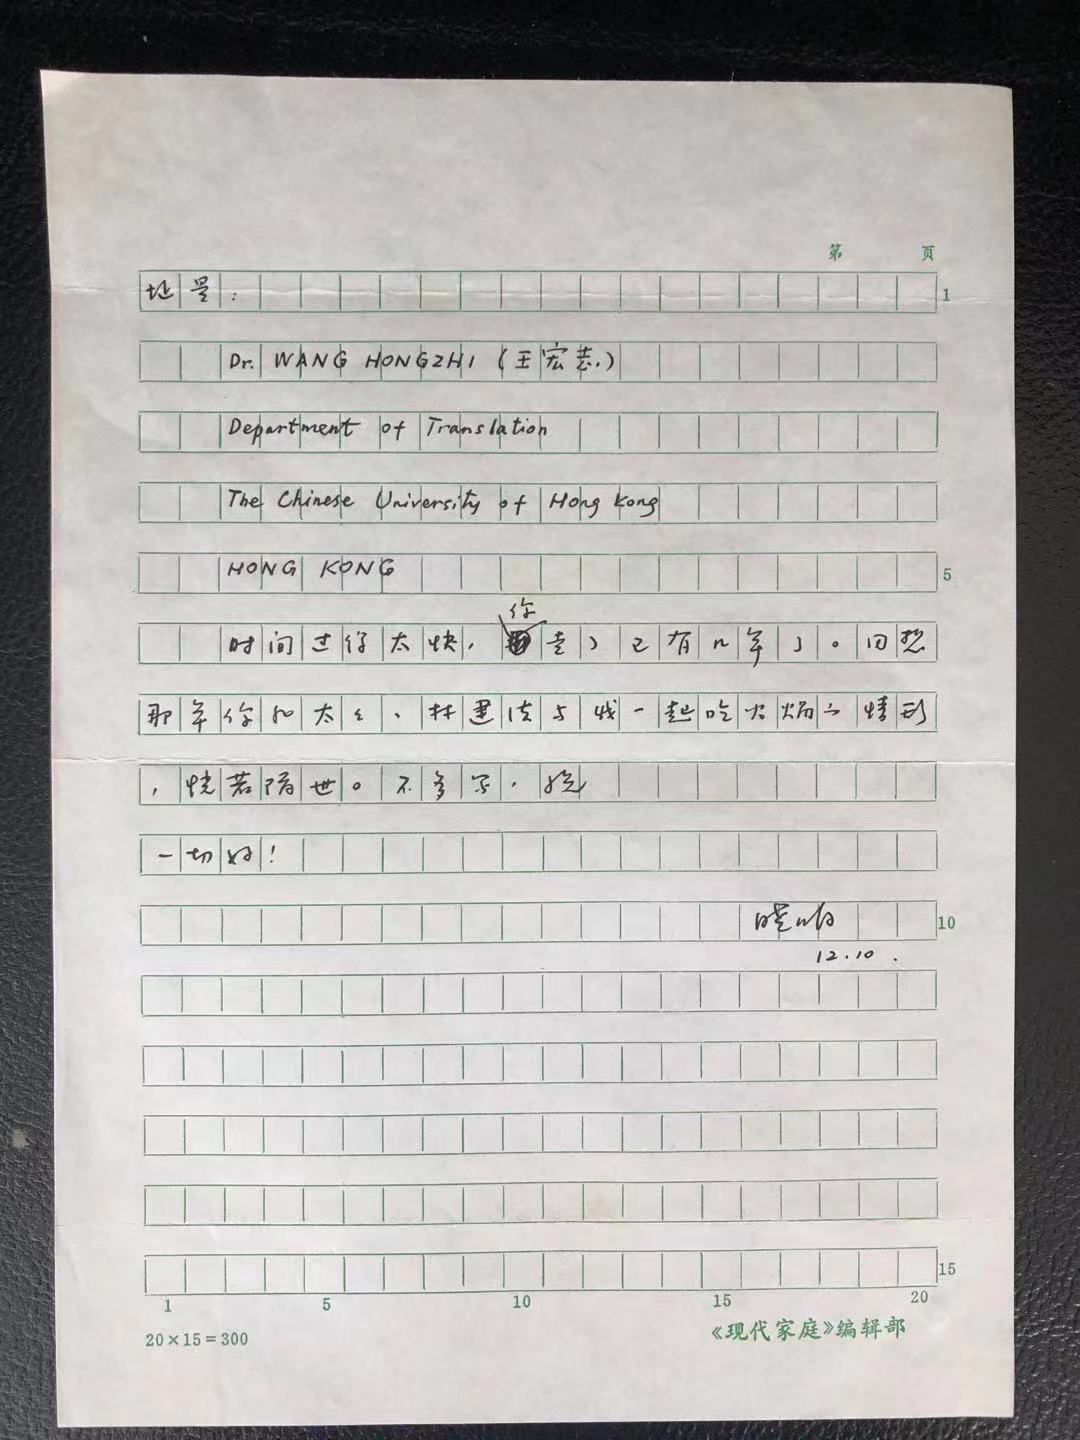 第 页
地是： 1
Dr. WANG HONGZHI (王宏志)
Department of Translation
The Chinese University of Hong Kong
HONG KONG 5
你
时间过得太快，走了已有几年了。回想
那年你和太太、林建法与我一起吃火锅的情形
，恍若隔世。不多写，祝
一切好！
10
12.10.
15
1 5 10 15 20
20×15=300 《现代家庭》编辑部